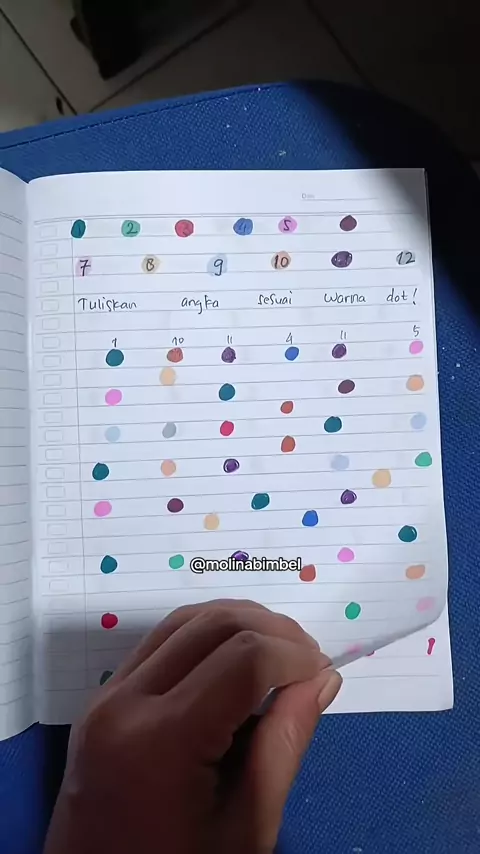 1 2 3 4 5
7 8 9 10 11 12
Tuliskan angka sesuai warna dot!
1 10 11 4 11 5
@molinabimbel